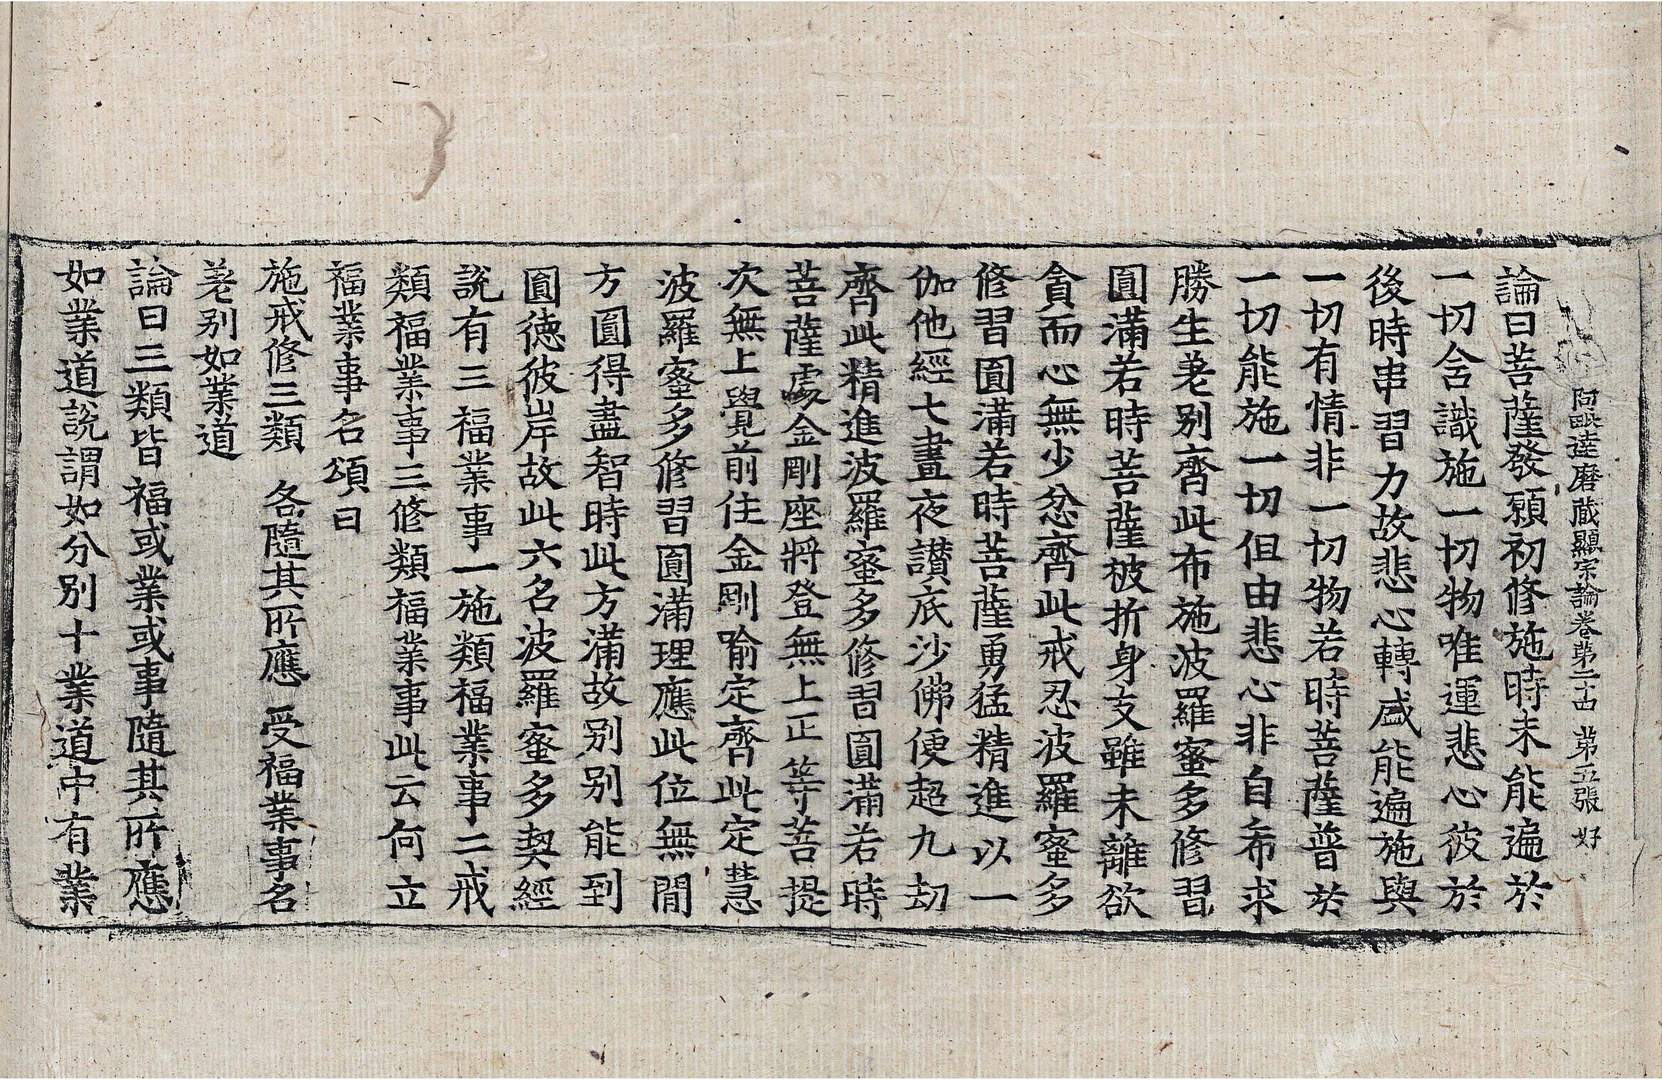 阿毗達磨蔵顯宗論卷第二十四 第五張 好
論曰菩薩發願初修施時未能遍於
一切含識施一切物唯運悲心彼於
後時串習力故悲心轉盛能遍施與
一切有情非一切物若時菩薩普於
一切能施一切但由悲心非自希求
勝生差别齊此布施波羅蜜多修習
圓滿若時菩薩被折身支雖未離欲
貪而心無少忿齊此戒忍波羅蜜多
修習圓滿若時菩薩勇猛精進以一
伽他經七晝夜讃底沙佛便超九劫
齊此精進波羅蜜多修習圓滿若時
菩薩處金剛座將登無上正等菩提
次無上覺前住金剛喻定齊此定慧
波羅蜜多修習圓滿理應此位無間
方圓得盡智時此方滿故别别能到
圓德彼岸故此六名波羅蜜多契經
說有三福業事一施類福業事二戒
類福業事三修類福業事此云何立
福業事名頌曰
施戒修三類 各隨其所應 受福業事名
差别如業道
論曰三類皆福或業或事隨其所應
如業道說謂如分别十業道中有業